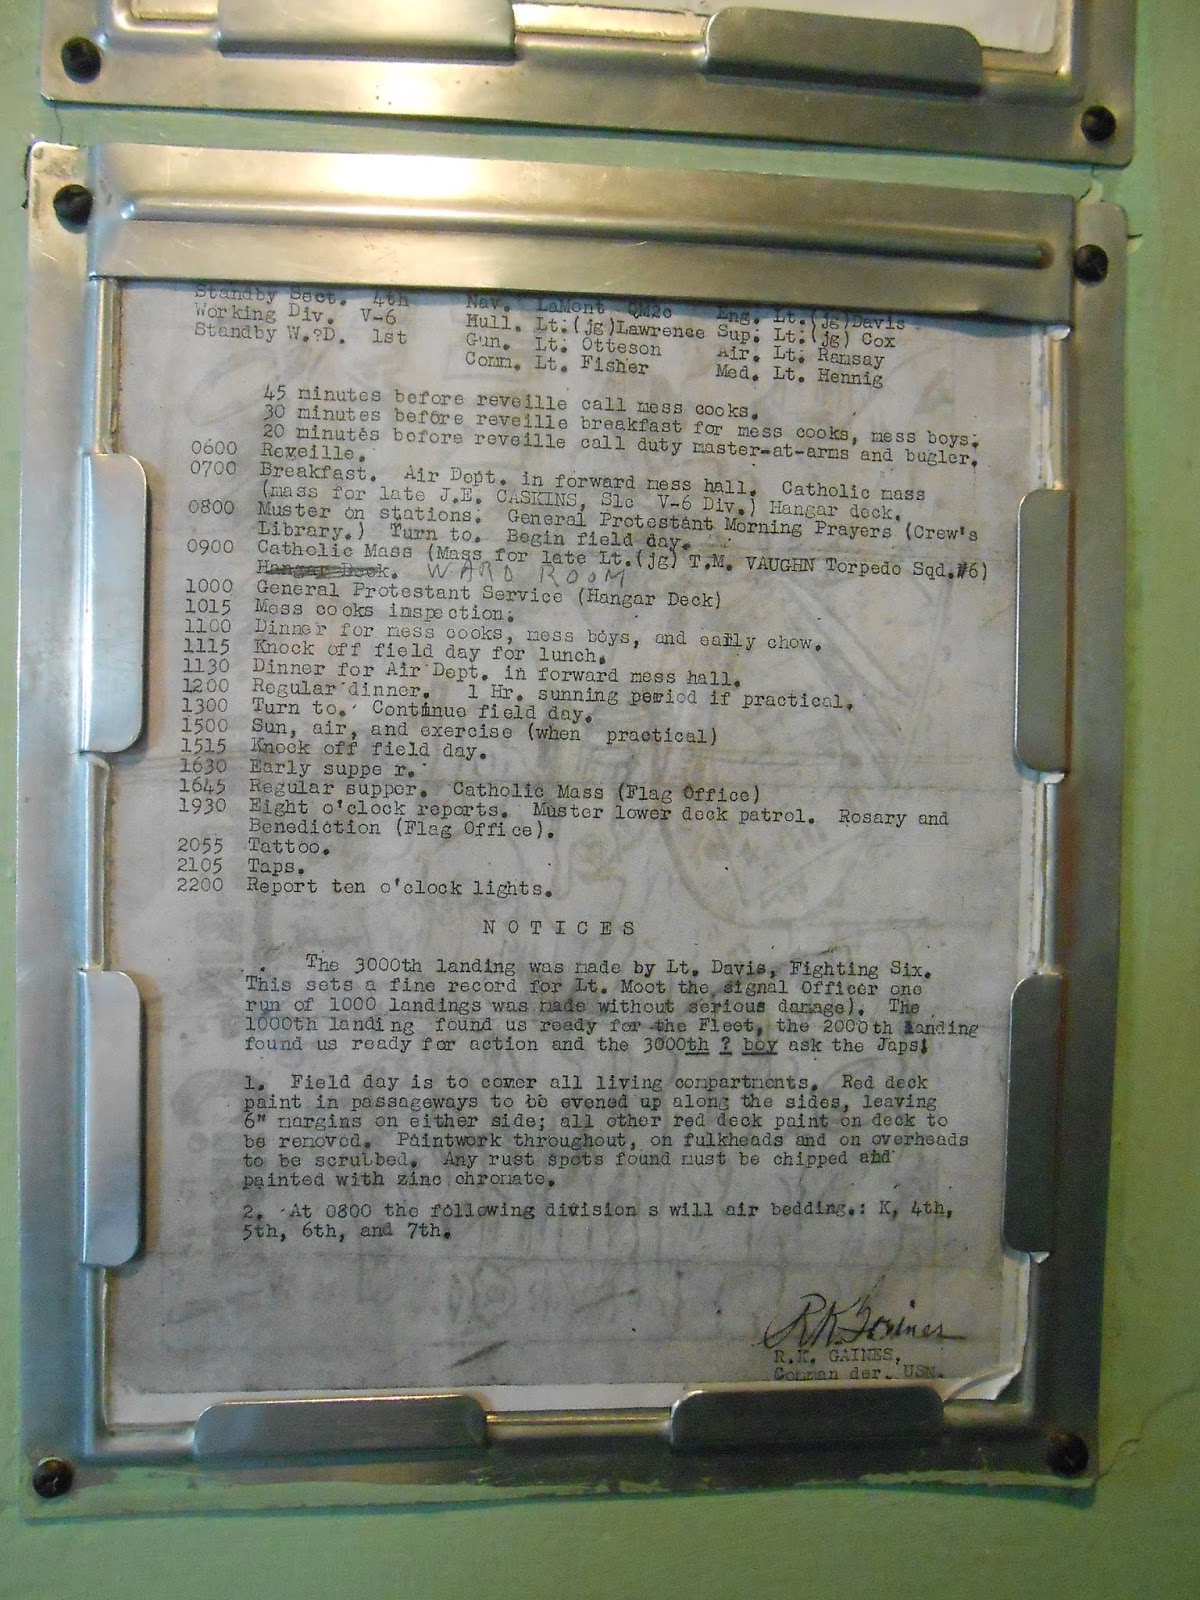 Standby Sect. 4th Nav. LaMont QM2c Eng. Lt.(jg)Davis
Working Div. V-6 Hull. Lt.(jg)Lawrence Sup. Lt.(jg) Cox
Standby W.?D. 1st Gun. Lt. Otteson Air. Lt. Ramsay
Comm. Lt. Fisher Med. Lt. Hennig
45 minutes before reveille call mess cooks.
30 minutes before reveille breakfast for mess cooks, mess boys.
20 minutes before reveille call duty master-at-arms and bugler.
0600 Reveille.
0700 Breakfast. Air Dept. in forward mess hall. Catholic mass
(mass for late J.E. CASKINS, S1c V-6 Div.) Hangar deck.
0800 Muster on stations. General Protestant Morning Prayers (Crew's
Library.) Turn to. Begin field day.
0900 Catholic Mass (Mass for late Lt.(jg) T.M. VAUGHN Torpedo Sqd.#6)
Hangar Deck. WARD ROOM
1000 General Protestant Service (Hangar Deck)
1015 Mess cooks inspection.
1100 Dinner for mess cooks, mess boys, and early chow.
1115 Knock off field day for lunch.
1130 Dinner for Air Dept. in forward mess hall.
1200 Regular dinner. 1 Hr. sunning period if practical.
1300 Turn to. Continue field day.
1500 Sun, air, and exercise (when practical)
1515 Knock off field day.
1630 Early suppe r.
1645 Regular supper. Catholic Mass (Flag Office)
1930 Eight o'clock reports. Muster lower deck patrol. Rosary and
Benediction (Flag Office).
2055 Tattoo.
2105 Taps.
2200 Report ten o'clock lights.
N O T I C E S
The 3000th landing was made by Lt. Davis, Fighting Six.
This sets a fine record for Lt. Moot the signal Officer one
run of 1000 landings was made without serious damage). The
1000th landing found us ready for the Fleet, the 2000th landing
found us ready for action and the 3000th ? boy ask the Japs!
1. Field day is to comer all living compartments. Red deck
paint in passageways to be evened up along the sides, leaving
6" margins on either side; all other red deck paint on deck to
be removed. Paintwork throughout, on fulkheads and on overheads
to be scrubbed. Any rust spots found must be chipped and
painted with zinc chromate.
2. At 0800 the following division s will air bedding.: K, 4th,
5th, 6th, and 7th.
RK Gaines
R.K. GAINES,
Comman der. USN.